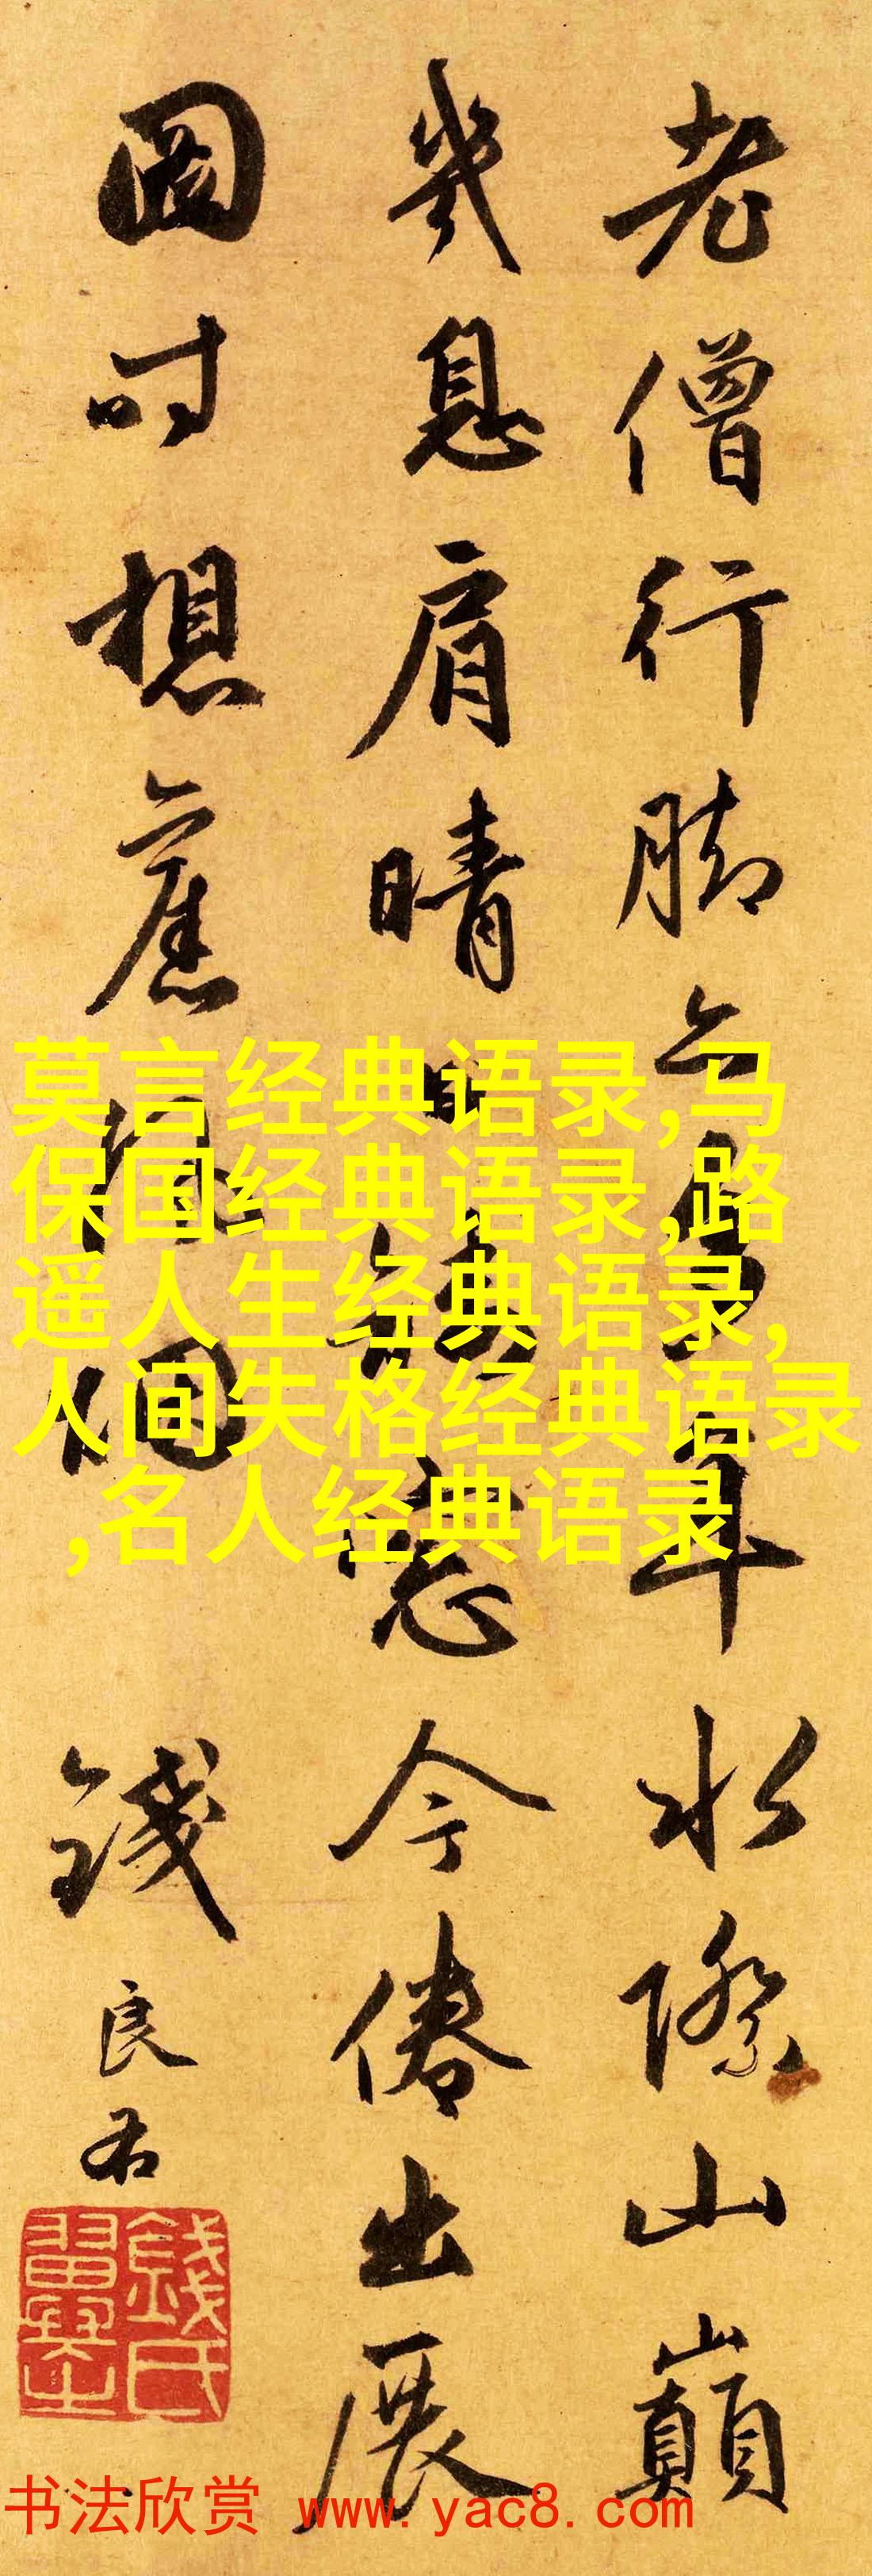 老僧行脚年水際山巔
幾息肩晴窓今倦出展
圖时想舊
錢良右
錢氏
翼之
莫言经典语录,马
保国经典语录,路
遥人生经典语录,
人间失格经典语录
,名人经典语录
书法欣赏 www.yac8.com